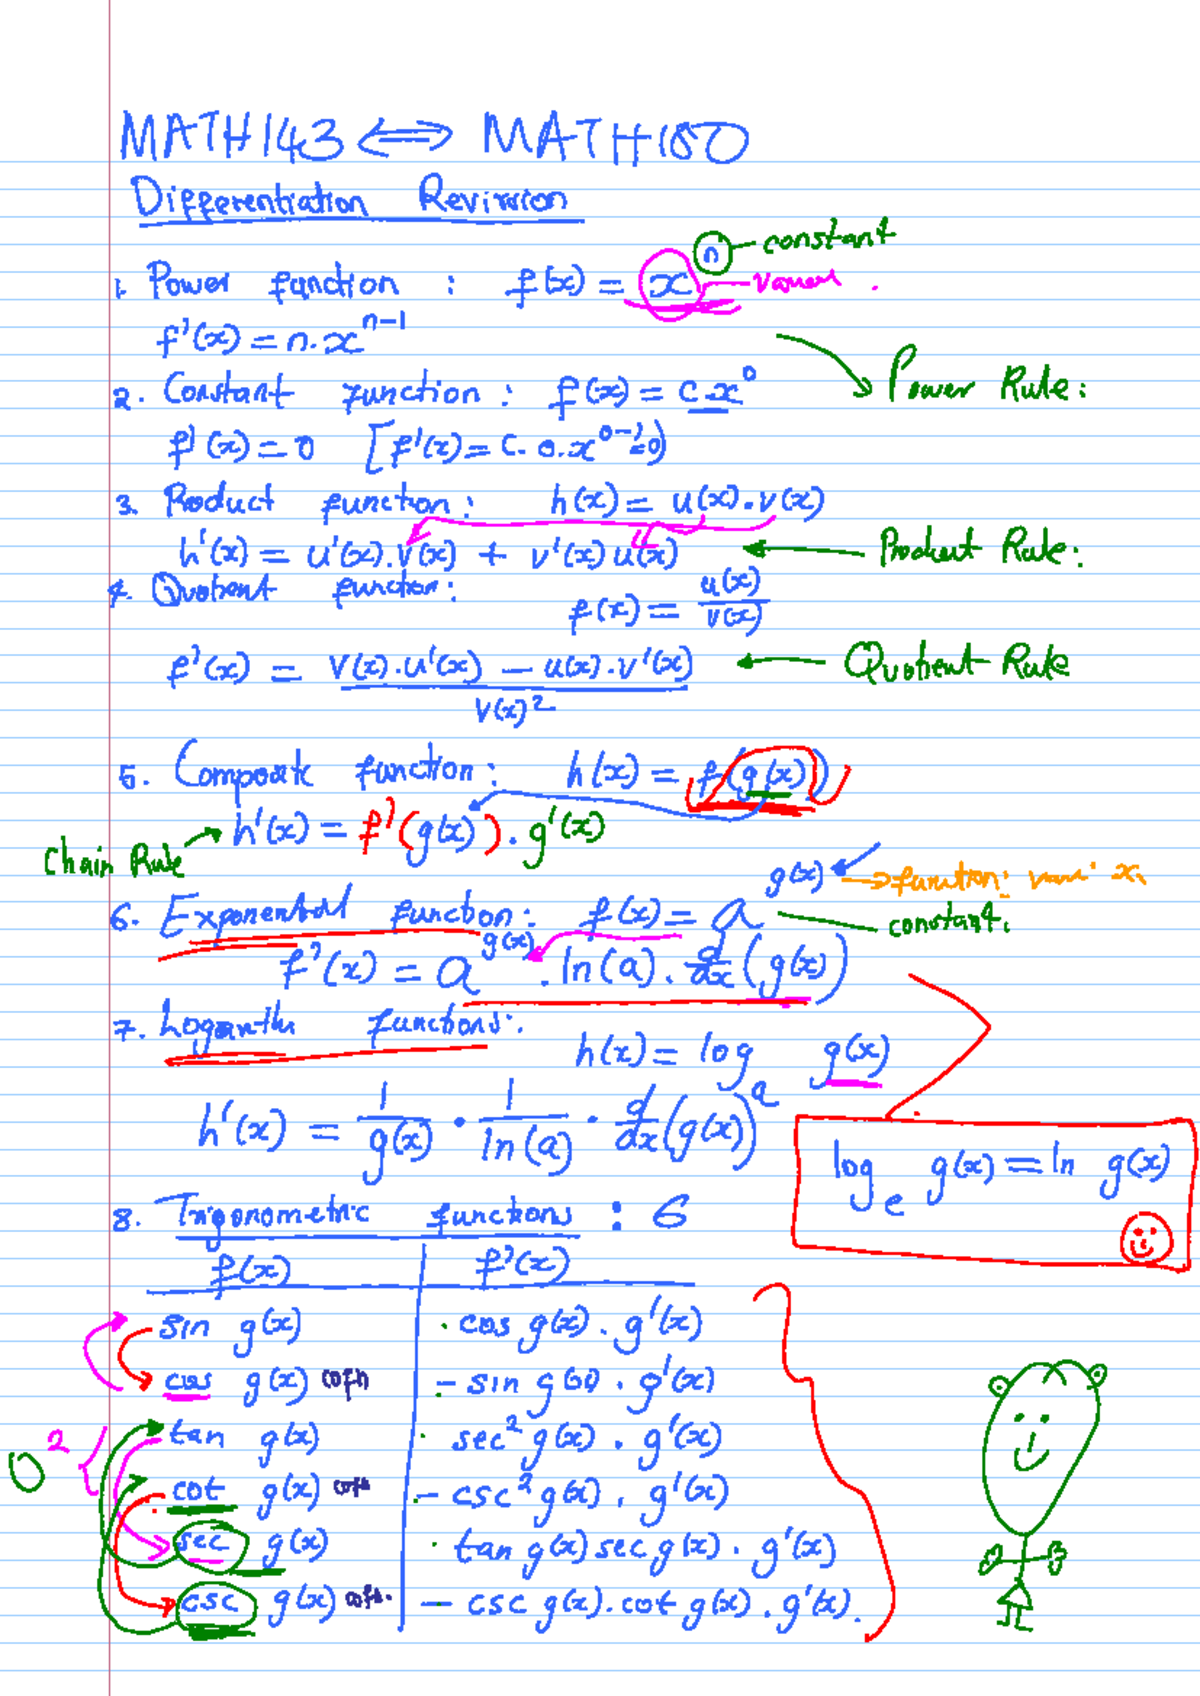 MATH143 ⟺ MATH180
Differentiation Revision
1. Power function : f(x) = x^n — constant
f'(x) = n.x^{n-1}
Power Rule:
2. Constant function : f(x) = c.x^0
f'(x) = 0 [f'(x) = c. 0.x^{0-1} = 0)
3. Product function : h(x) = u(x).v(x)
h'(x) = u'(x).v(x) + v'(x) u(x) ← Product Rule:
4. Quotient function : f(x) = u(x)/v(x)
f'(x) = (v(x).u'(x) − u(x).v'(x))/v(x)^2 ← Quotient Rule
5. Composite function : h(x) = f(g(x))
Chain Rule → h'(x) = f'(g(x)).g'(x)
6. Exponential function : f(x) = a^{g(x)} → function: x.
constant.
f'(x) = a^{g(x)} . ln(a) . d/dx (g(x))
7. Logarithm functions:
h(x) = log_a g(x)
h'(x) = 1/g(x) . 1/ln(a) . d/dx (g(x))
log_e g(x) = ln g(x)
8. Trigonometric functions : 6
f(x) | f'(x)
sin g(x) | cos g(x) . g'(x)
cos g(x) cofn | − sin g(x) . g'(x)
tan g(x) | sec^2 g(x) . g'(x)
2
cot g(x) cofn | − csc^2 g(x) . g'(x)
sec g(x) | tan g(x) sec g(x) . g'(x)
csc g(x) cofn. | − csc g(x) . cot g(x) . g'(x).